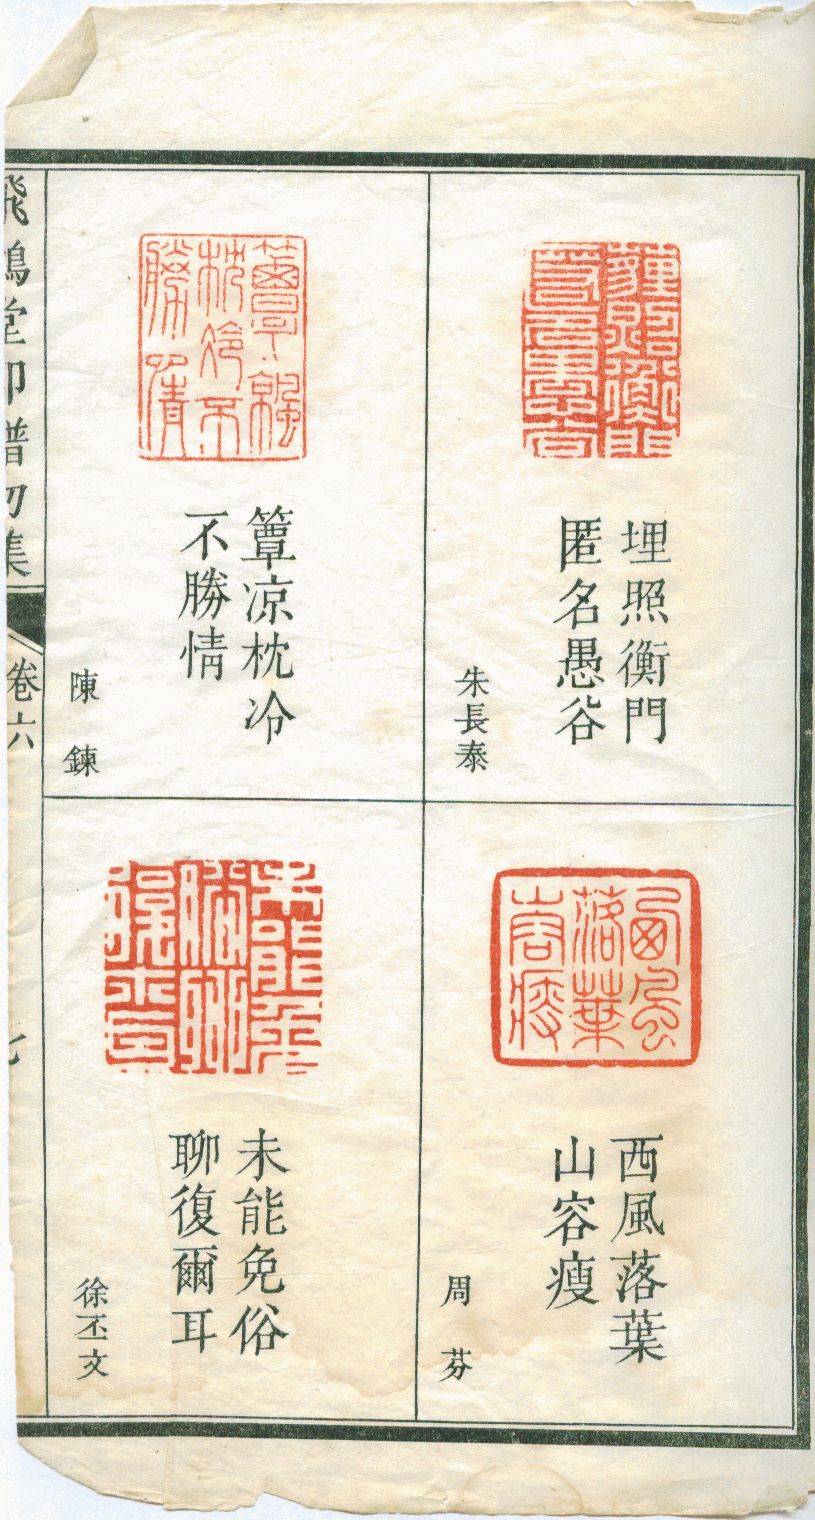 埋照衡門
匿名愚谷
朱長泰
簟凉枕冷
不勝情
陳鍊
西風落葉
山容瘦
周芬
未能免俗
聊復爾耳
徐丕文
飛鴻堂印譜初集
卷六
七